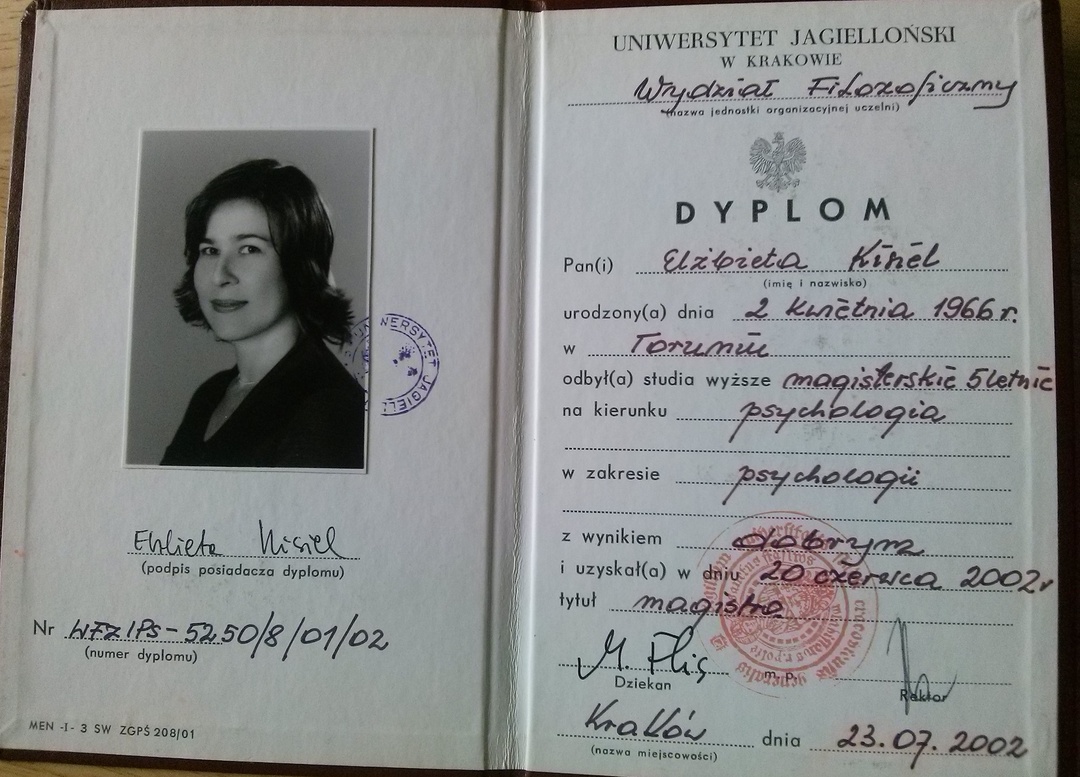 UNIWERSYTET JAGIEL
Elżbieta Kisiel
(podpis posiadacza dyplomu)
Nr WFZ IPS - 5250/8/01/02
(numer dyplomu)
MEN -I- 3 SW ZGPŚ 208/01
UNIWERSYTET JAGIELLOŃSKI
W KRAKOWIE
Wydział Filozoficzny
(nazwa jednostki organizacyjnej uczelni)
DYPLOM
Pan(i) Elżbieta Kisiel
(imię i nazwisko)
urodzony(a) dnia 2 kwietnia 1966 r.
w Toruniu
odbył(a) studia wyższe magisterskie 5letnie
na kierunku psychologia
w zakresie psychologii
z wynikiem dobrym
i uzyskał(a) w dniu 20 czerwca 2002r
tytuł magistra
M. Flis
Dziekan
m. p.
Rektor
Kraków dnia 23.07.2002
(nazwa miejscowości)